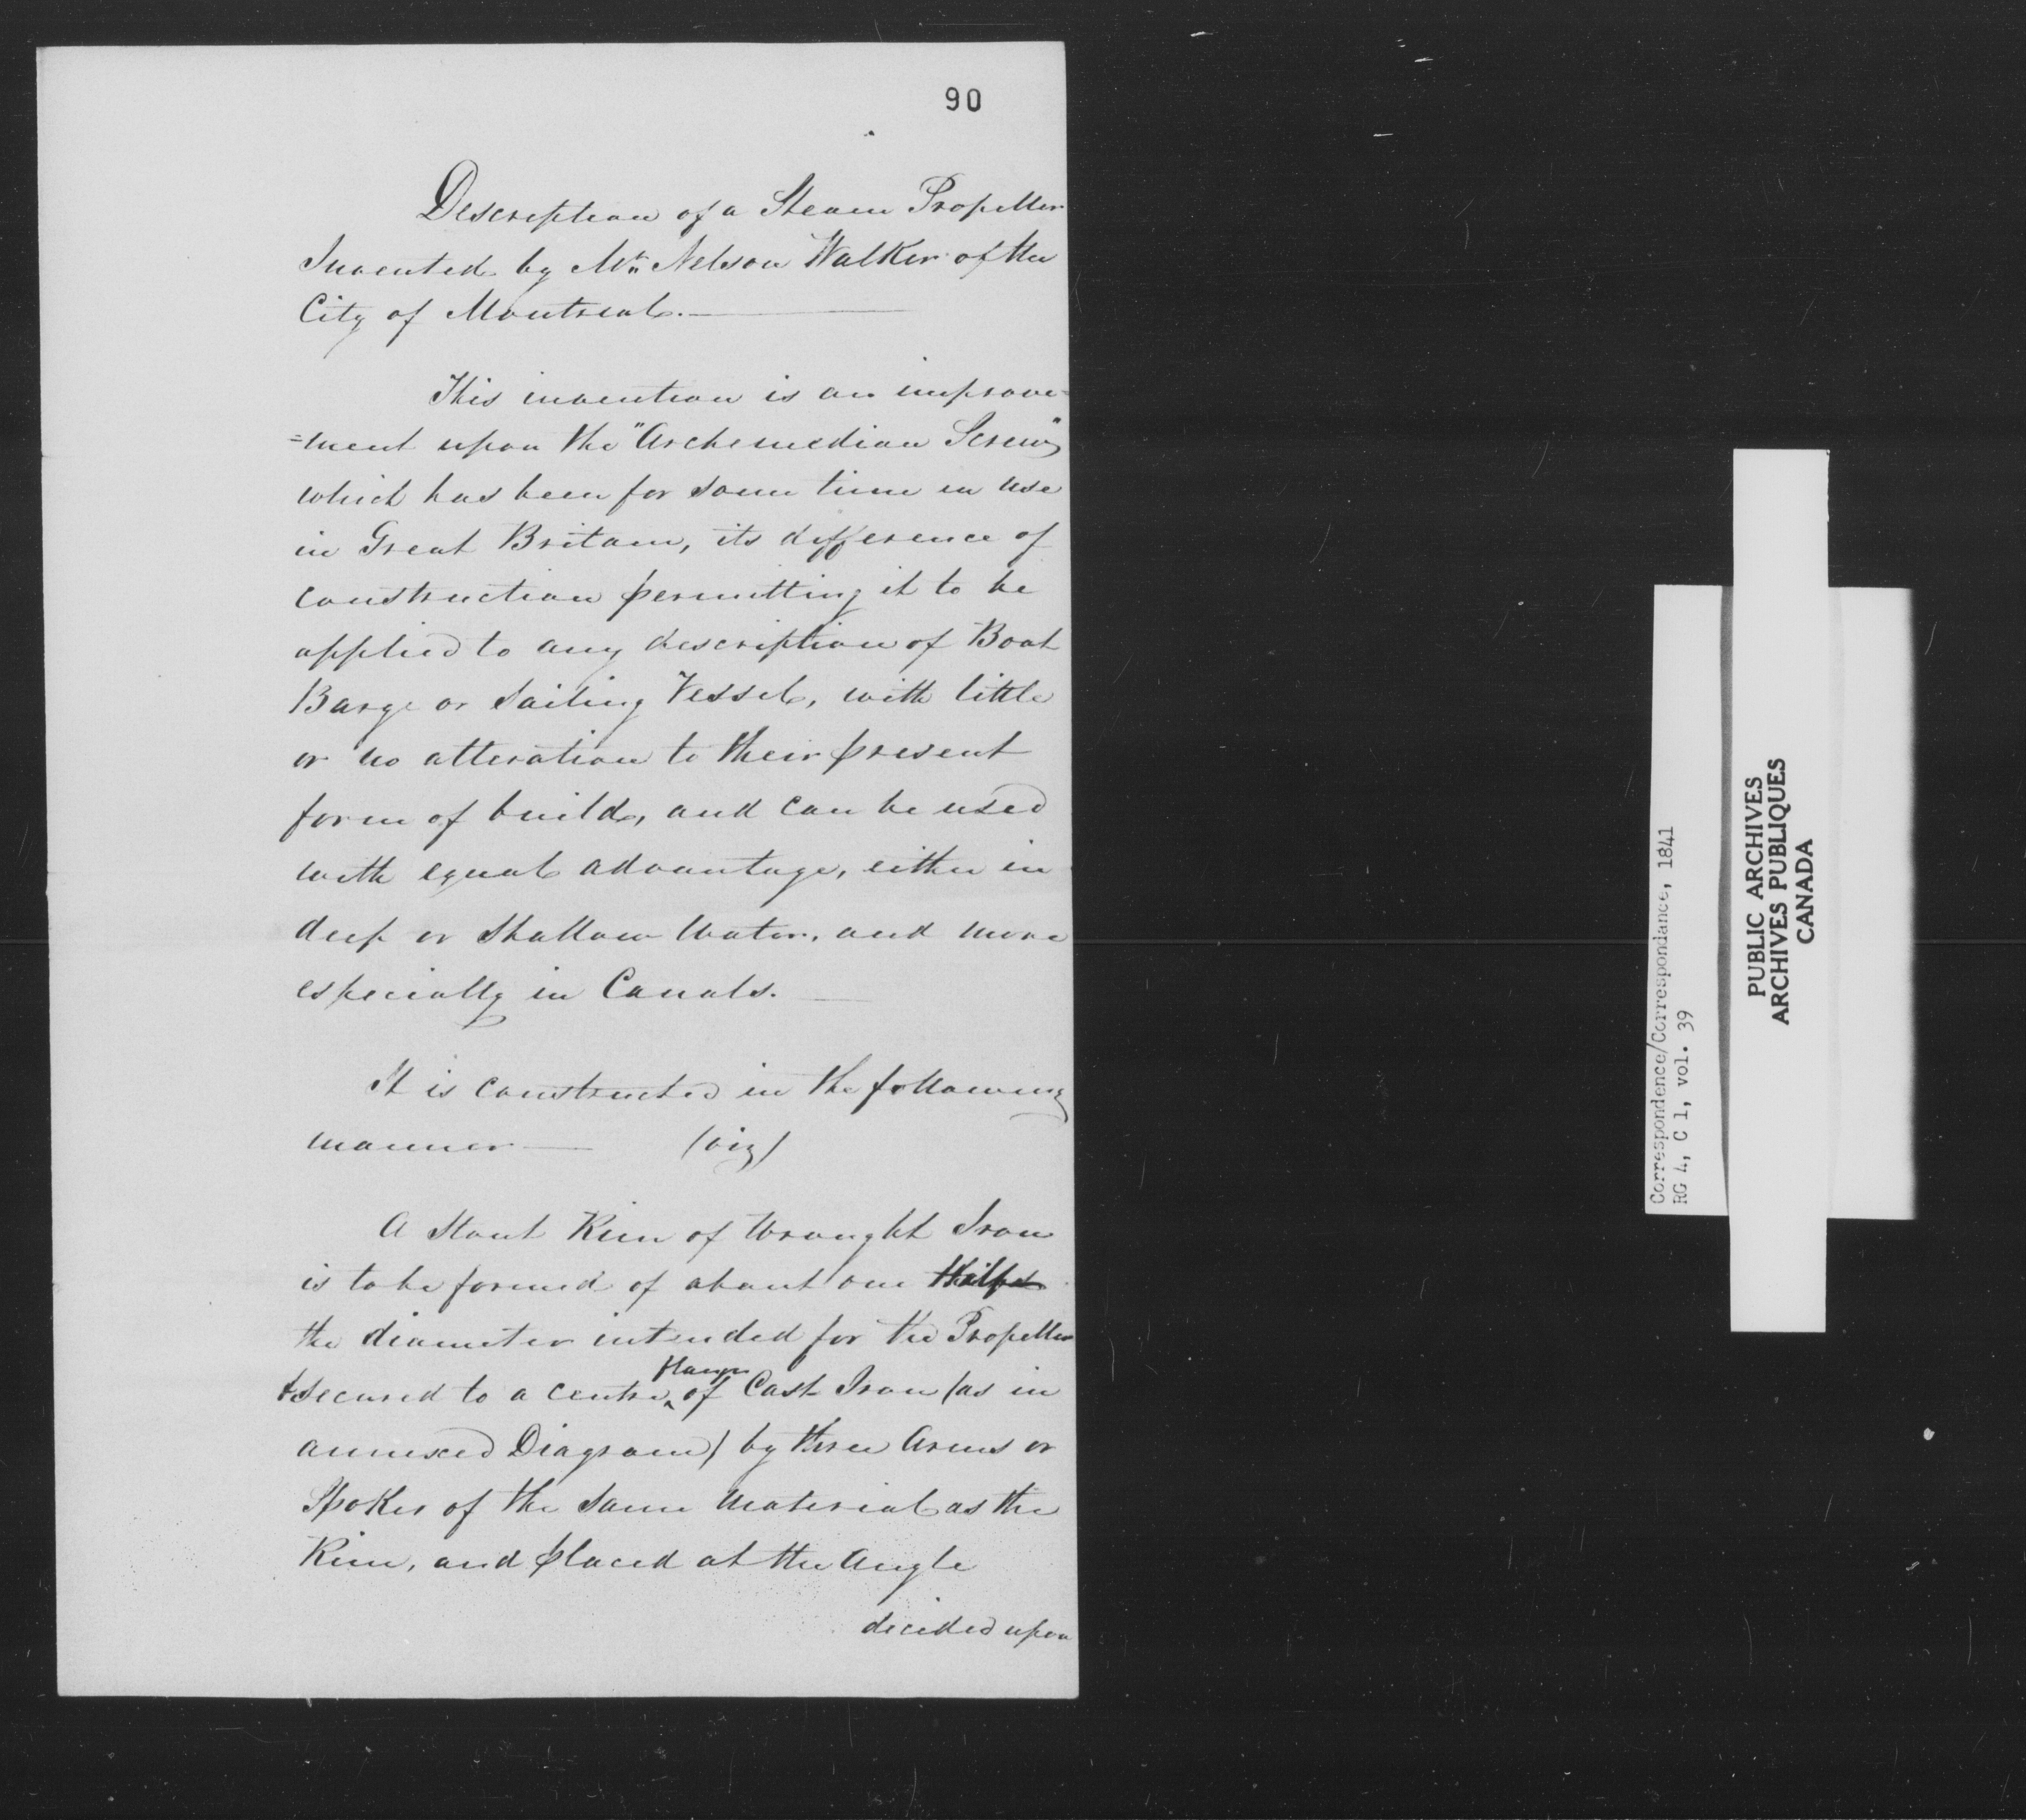 90
Description of a Steam Propeller
Invented by Mr. Nelson Walker of the
City of Montreal.—
This invention is an improve-
=ment upon the "Archemedian Screw"
which has been for some time in use
in Great Britain, its difference of
construction permitting it to be
applied to any description of Boat
Barge or Sailing Vessel, with little
or no alteration to their present
form of build, and can be used
with equal advantage, either in
deep or Shallow Water, and more
especially in Canals.—
It is constructed in the following
manner — (viz)
A Stout Rim of Wrought Iron
is to be formed of about one
the diameter intended for the Propeller
& secured to a centre flange of Cast Iron (as in
annexed Diagram) by three Arms or
Spokes of the same Material as the
Rim, and placed at the Angle
decided upon
Correspondence/Correspondance, 1841
RG 4, C 1, vol. 39
PUBLIC ARCHIVES
ARCHIVES PUBLIQUES
CANADA